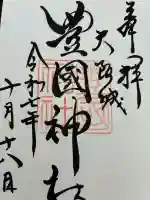 奉拝
大阪城
豊國神社
令和七年
十月十六日